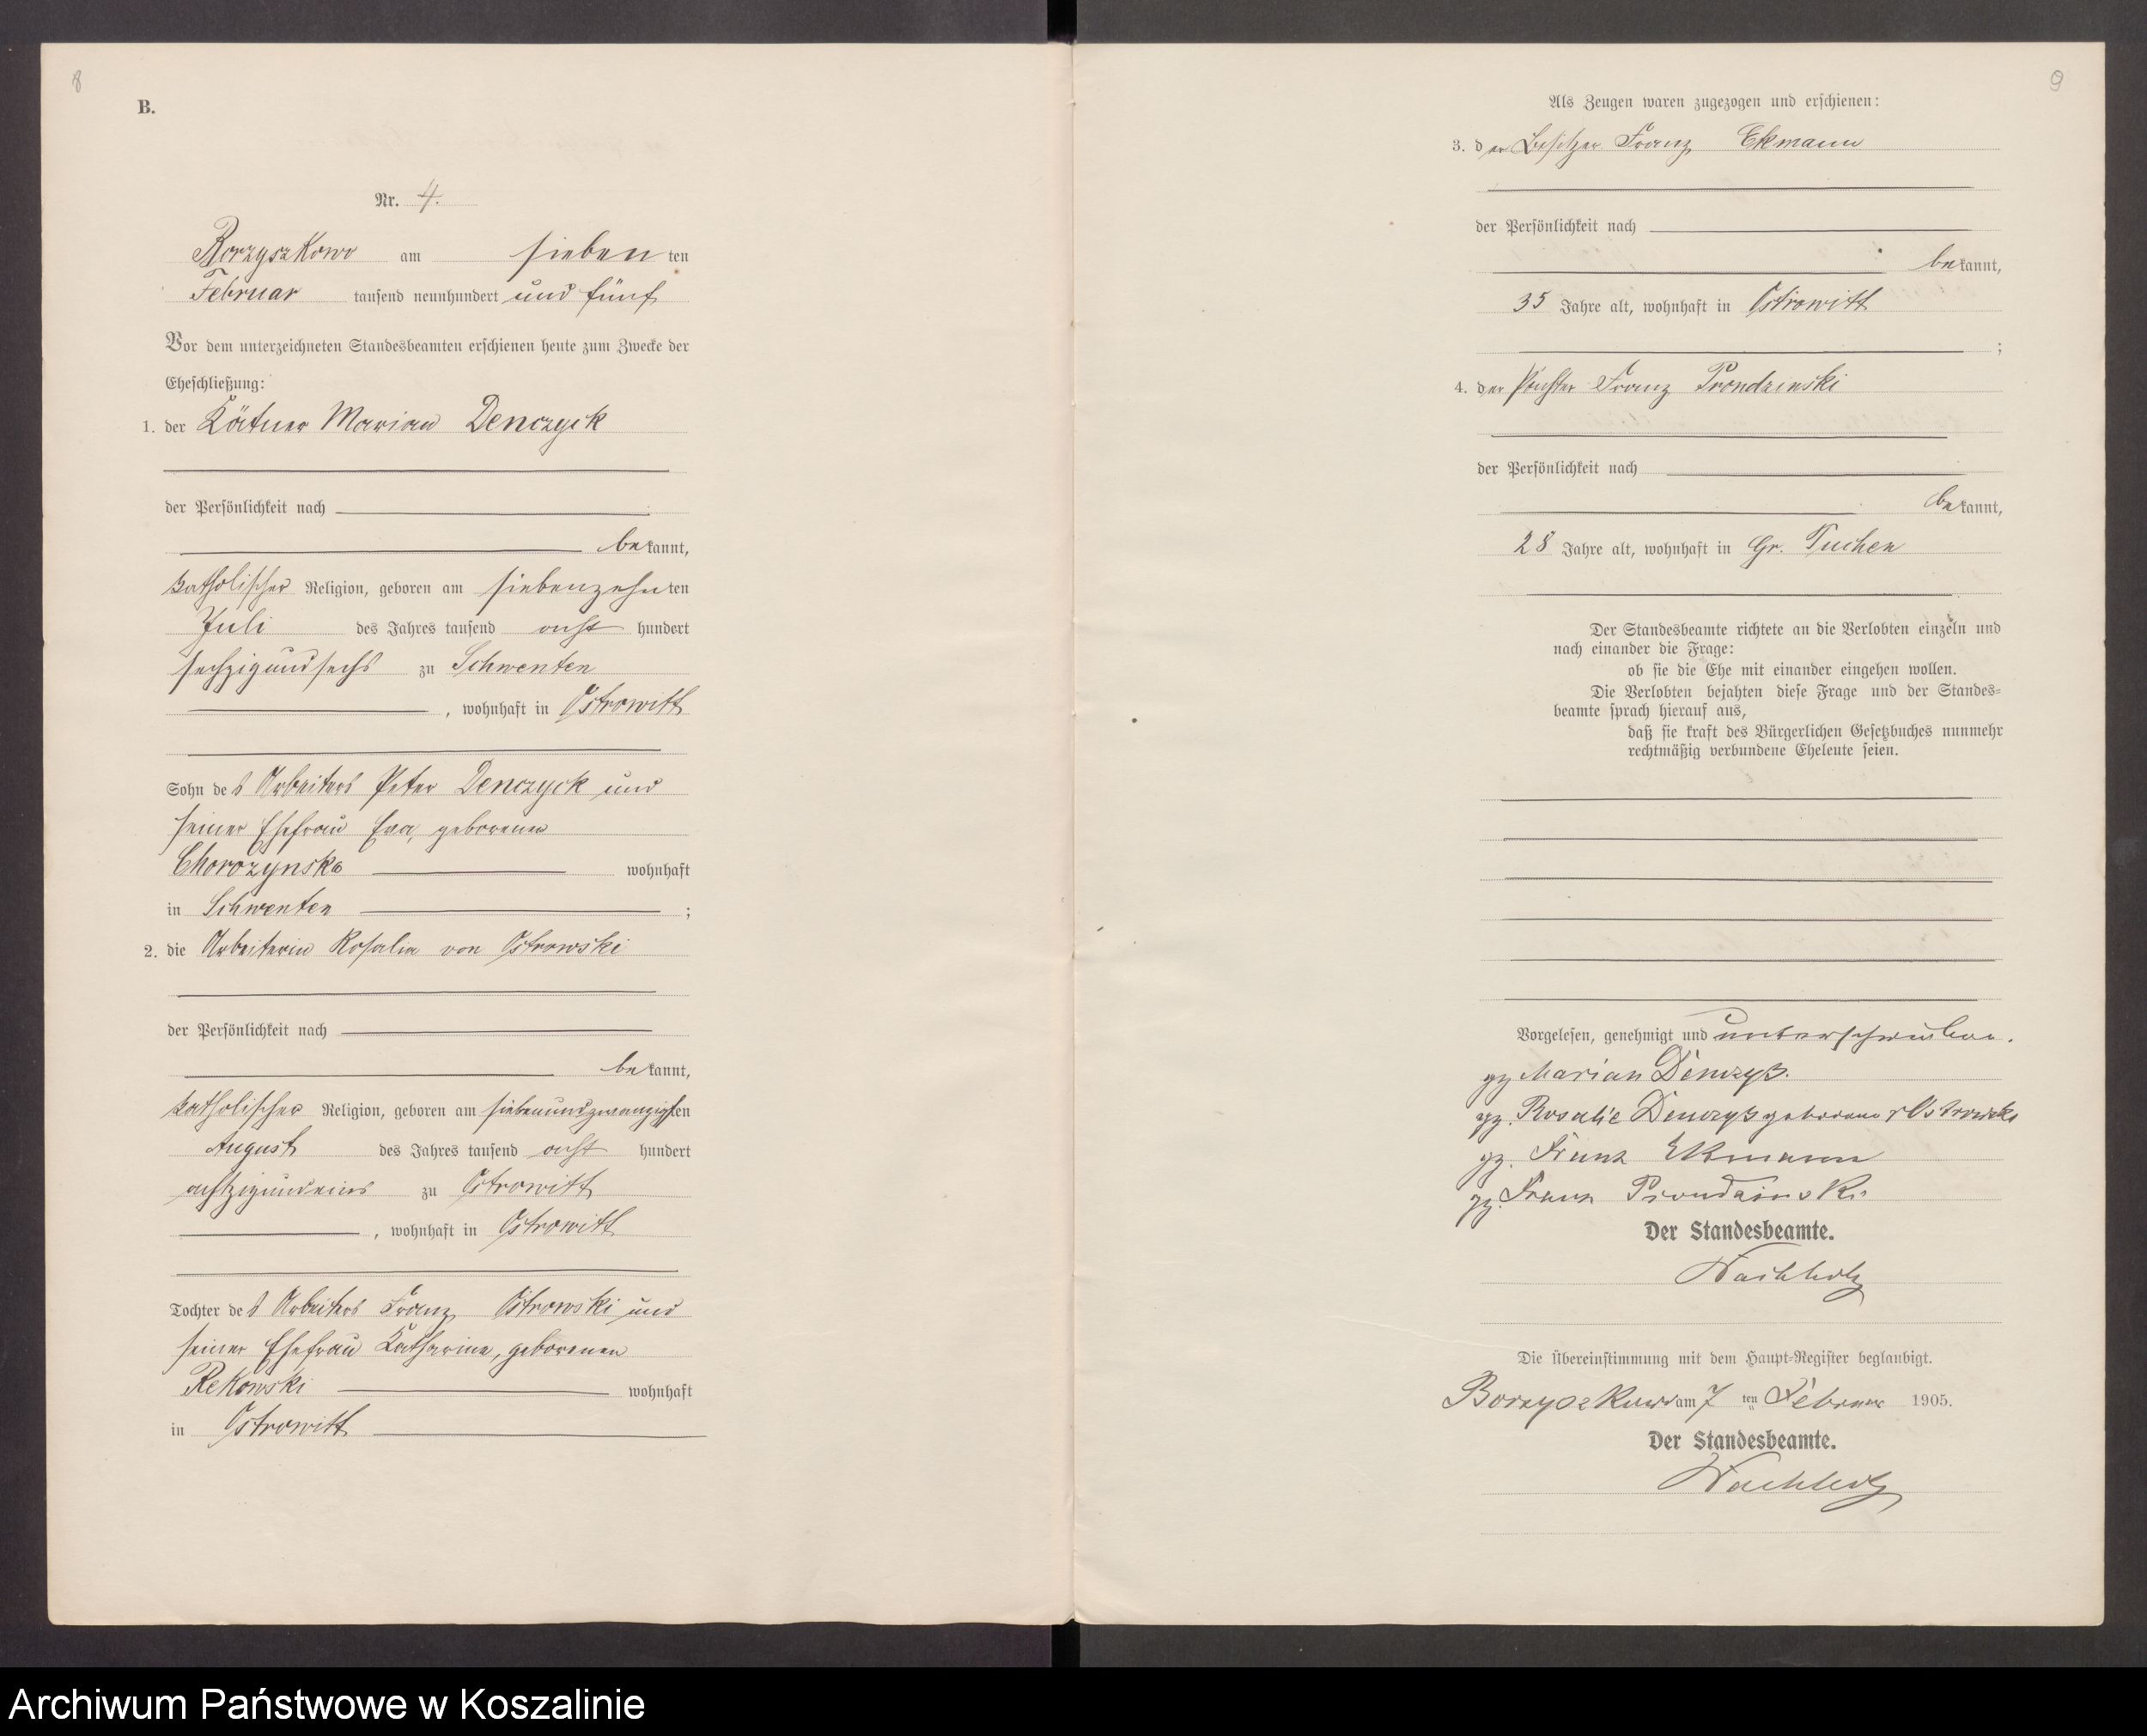 8
B.
Nr. 4.
Borzyszkowo am sieben ten
Februar tausend neunhundert und fünf
Vor dem unterzeichneten Standesbeamten erschienen heute zum Zwecke der
Eheschließung:
1. der Kätner Marian Denczyck
der Persönlichkeit nach
bekannt,
katholischer Religion, geboren am siebenzehnten
Juli des Jahres tausend acht hundert
sechzigundsechs zu Schwenten
, wohnhaft in Ostrowitt
Sohn des Arbeiters Peter Denczyck und
seiner Ehefrau Eva, geborenen
Chorozynska wohnhaft
in Schwenten ;
2. die Arbeiterin Rosalia von Ostrowski
der Persönlichkeit nach
bekannt,
katholischer Religion, geboren am siebenundzwanzigsten
August des Jahres tausend acht hundert
achtzigundeins zu Ostrowitt
, wohnhaft in Ostrowitt
Tochter des Arbeiters Franz Ostrowski und
seiner Ehefrau Katharina, geborenen
Rekowski wohnhaft
in Ostrowitt
9
Als Zeugen waren zugezogen und erschienen:
3. der Besitzer Franz Ekmann
der Persönlichkeit nach
bekannt,
35 Jahre alt, wohnhaft in Ostrowitt
;
4. der Franz Prondzinski
der Persönlichkeit nach
bekannt,
28 Jahre alt, wohnhaft in Gr. Tuchen
Der Standesbeamte richtete an die Verlobten einzeln und
nach einander die Frage:
ob sie die Ehe mit einander eingehen wollen.
Die Verlobten bejahten diese Frage und der Standes-
beamte sprach hierauf aus,
daß sie kraft des Bürgerlichen Gesetzbuches nunmehr
rechtmäßig verbundene Eheleute seien.
Vorgelesen, genehmigt und unterschrieben.
gz Marian
gz. Rosalie geborene v Ostrowski
gz. Franz Ekmann
gz. Franz Prondzinski
Der Standesbeamte.
Wachholz
Die Übereinstimmung mit dem Haupt-Register beglaubigt.
Borzyszkowo am 7 ten Februar 1905.
Der Standesbeamte.
Wachholz
Archiwum Państwowe w Koszalinie